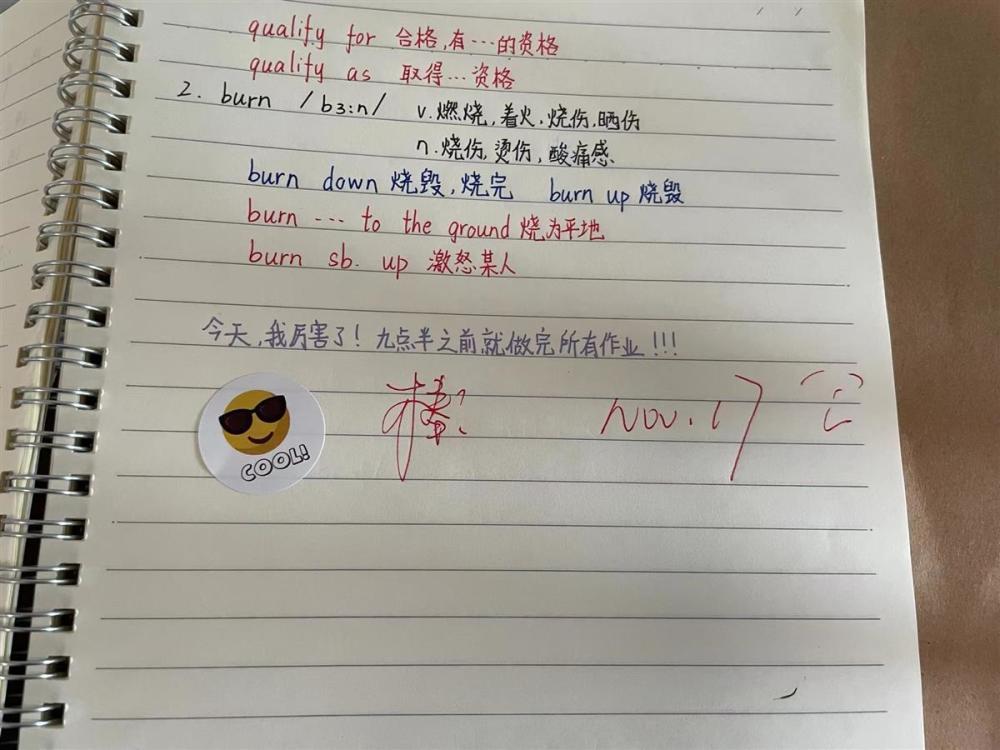 qualify for 合格,有…的资格
qualify as 取得…资格
2. burn /bɜ:n/ v.燃烧,着火,烧伤,晒伤
n.烧伤,烫伤,酸痛感
burn down 烧毁,烧完 burn up 烧毁
burn … to the ground 烧为平地
burn sb. up 激怒某人
今天,我厉害了!九点半之前就做完所有作业!!!
COOL!
棒! Nov. 17